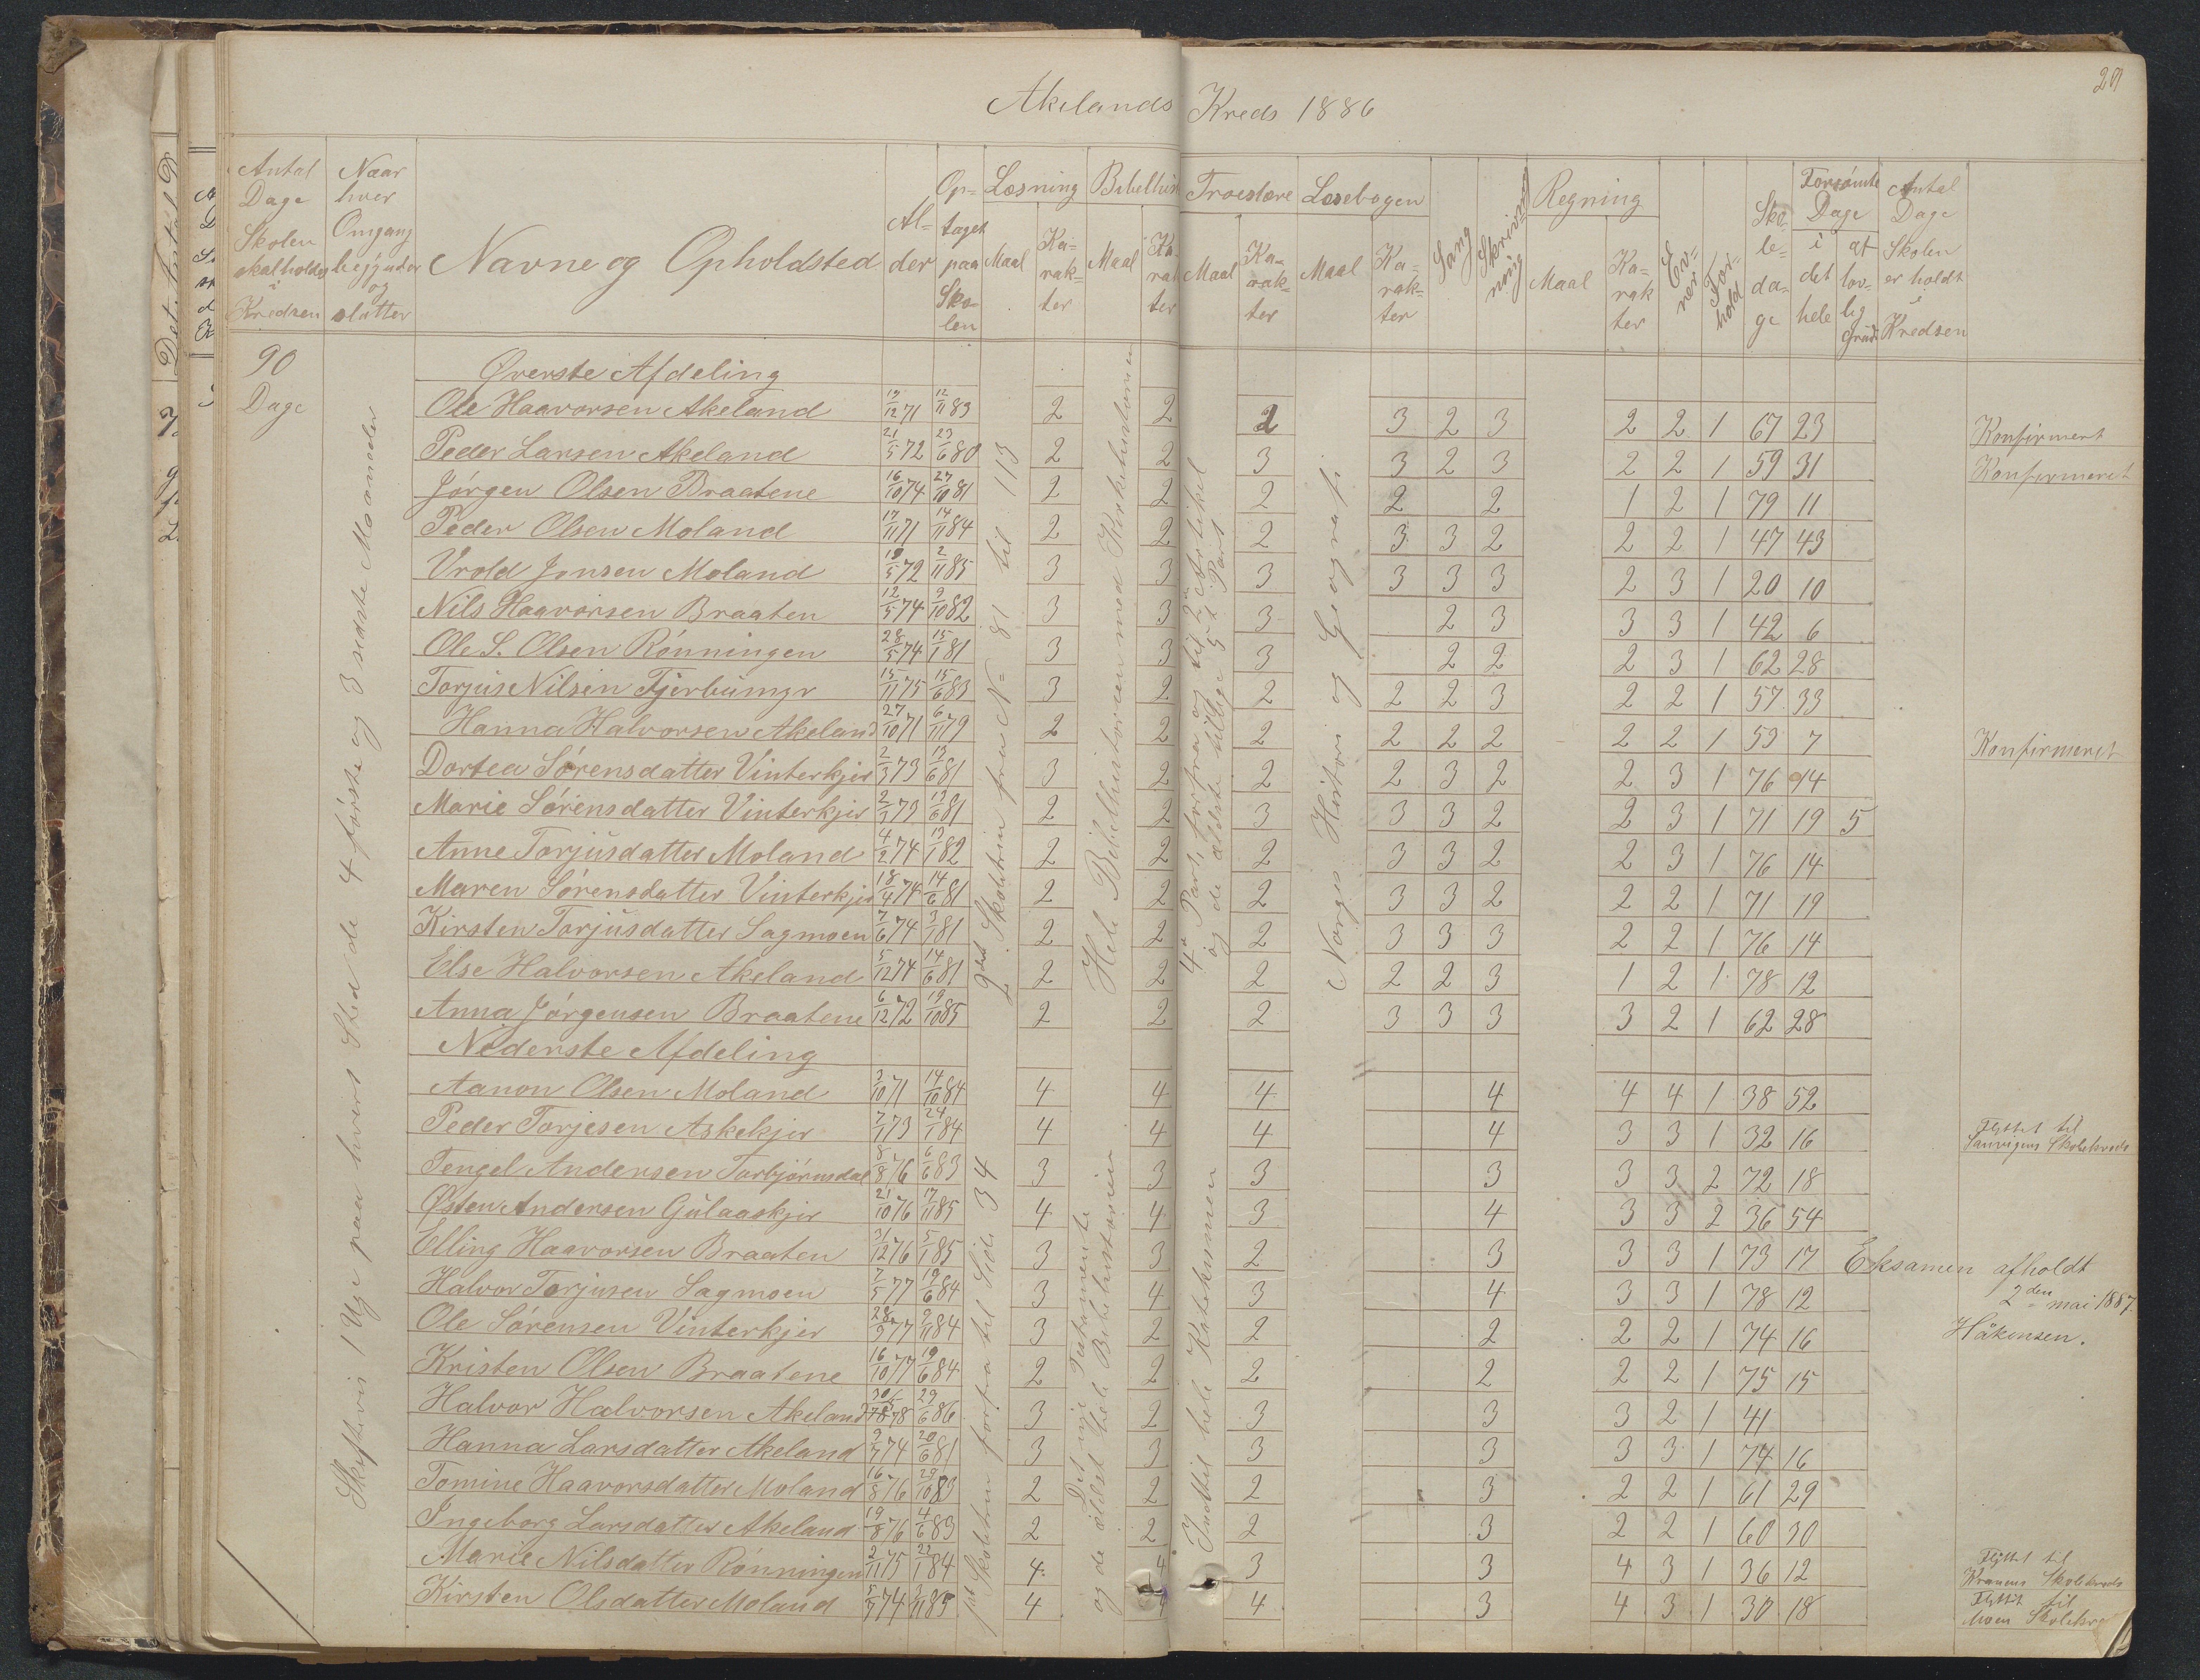 29
Akelands Kreds 1886
Antal Dage Skolen skal holdes i Kredsen
Naar hver Omgang begynder og slutter
Navne og Opholdsted
Alder
Optaget paa Skolen
Læsning Maal Karakter
Bibelhist Maal Karakter
Troeslære Maal Karakter
Læsebogen Maal Karakter
Sang
Skrivning
Regning Maal Karakter
Evner
Forhold
Skoledage
Forsømte Dage i det hele af lovlig Grund
Antal Dage Skolen er holdt i Kredsen
90 Dage
Skiftevis 1 Uge paa hvert Sted de 4 første og 3 sidste Maaneder
Øverste Afdeling
2det Skoletrin fra N= 81 til 113
Hele Bibelhistorien med Kirkehistorien
4de Part forfra og til 2. Artikel
og de ældste tillige 5te Part
Norges Histori og Geografi
Ole Haavorsen Akeland 19/12 71 12/11 83 2 2 2 3 2 3 2 2 1 67 23 Konfirmert
Peder Larsen Akeland 21/5 72 23/6 80 2 2 3 3 2 3 2 2 1 59 31 Konfirmeret
Jörgen Olsen Braatene 16/10 74 27/10 81 2 2 2 2 2 1 2 1 79 11
Peder Olsen Moland 17/11 71 14/11 84 2 2 2 3 3 2 2 2 1 47 43
Vrold Jonsen Moland 19/5 72 2/11 85 3 3 3 3 3 3 2 3 1 20 10
Nils Haavorsen Braaten 12/5 74 9/10 82 3 3 3 2 3 3 3 1 42 6
Ole S. Olsen Rönningen 28/5 74 15/1 81 3 3 3 2 2 2 3 1 62 28
Torjus Nilsen Tjerbumyr 15/11 75 15/6 83 3 2 2 2 2 3 2 2 1 57 33
Hanna Halvorsen Akeland 27/10 71 6/11 79 2 2 2 2 2 2 2 2 1 53 7 Konfirmeret
Dortea Sörensdatter Vinterkjer 2/3 73 13/6 81 3 2 2 2 3 2 2 3 1 76 14
Marie Sörensdatter Vinterkjer 2/3 73 13/6 81 2 2 3 3 3 2 2 3 1 71 19 5
Anne Torjusdatter Moland 4/2 74 13/1 82 2 2 2 3 3 2 2 3 1 76 14
Maren Sörensdatter Vinterkjer 18/4 74 14/6 81 2 2 2 3 3 2 2 2 1 71 19
Kirsten Torjusdatter Sagmoen 7/6 74 3/1 81 2 2 2 3 3 3 2 2 1 76 14
Else Halvorsen Akeland 5/12 74 14/6 81 2 2 2 2 2 3 1 2 1 78 12
Anna Jörgensen Braatene 6/12 72 19/10 85 2 2 2 3 3 3 3 2 1 62 28
Nederste Afdeling
1ste Skoletrin forfra til Side 34
Det nye Testamente
og de ældst hele Bibelhistorien
Indtil hele Katekismen
Aanon Olsen Moland 3/10 71 14/10 84 4 4 4 4 4 4 1 38 52
Peder Torjesen Askekjer 7/1 73 24/1 84 4 4 4 4 3 3 1 32 16 Flyttet til Sanvigens Skolekreds
Tengel Andersen Torbjörnsdal 8/8 76 6/6 83 3 3 3 3 3 3 2 72 18
Østen Andersen Gulaaskjer 21/10 76 17/11 85 4 4 3 4 3 3 2 36 54
Elling Haavorsen Braaten 31/12 76 5/1 85 3 3 2 3 3 3 1 73 17
Halvor Torjusen Sagmoen 7/5 77 19/6 84 3 4 3 4 3 3 1 78 12
Ole Sörensen Vinterkjer 28/3 77 9/11 84 3 2 2 2 2 2 1 74 16
Kristen Olsen Braatene 16/10 77 19/6 84 2 2 2 2 2 2 1 75 15
Halvor Halvorsen Akeland 30/5 78 29/6 86 3 2 3 3 3 2 1 41
Hanna Larsdatter Akeland 9/7 74 20/6 81 3 3 3 3 3 3 1 74 16
Tomine Haavorsdatter Moland 16/8 76 29/10 83 2 2 2 3 2 2 1 61 29
Ingeborg Larsdatter Akeland 19/8 76 4/6 83 2 2 2 3 2 2 1 60 30
Marie Nilsdatter Rönningen 2/11 75 22/1 84 4 4 3 3 4 3 1 36 12 Flyttet til Kranens Skolekreds
Kirsten Olsdatter Moland 5/7 74 3/11 85 4 4 3 4 3 1 30 18 Flyttet til Moen Skolekre
Eksamen afholdt
2den mai 1887.
Håkensen.